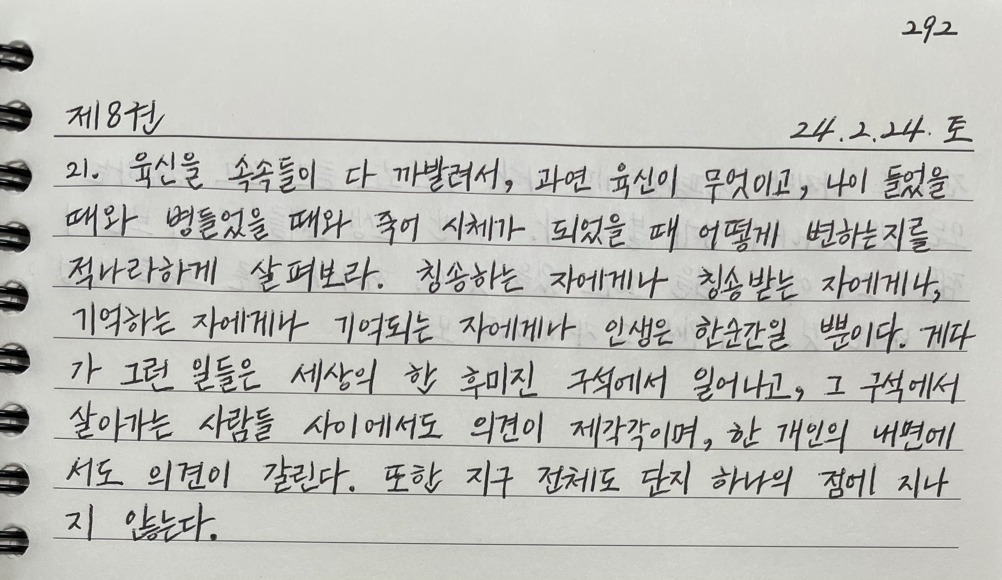 292
제8권
24.2.24. 토
21. 육신을 속속들이 다 까발려서, 과연 육신이 무엇이고, 나이 들었을
때와 병들었을 때와 죽어 시체가 되었을 때 어떻게 변하는지를
적나라하게 살펴보라. 칭송하는 자에게나 칭송받는 자에게나,
기억하는 자에게나 기억되는 자에게나 인생은 한순간일 뿐이다. 게다
가 그런 일들은 세상의 한 후미진 구석에서 일어나고, 그 구석에서
살아가는 사람들 사이에서도 의견이 제각각이며, 한 개인의 내면에
서도 의견이 갈린다. 또한 지구 전체도 단지 하나의 점에 지나
지 않는다.